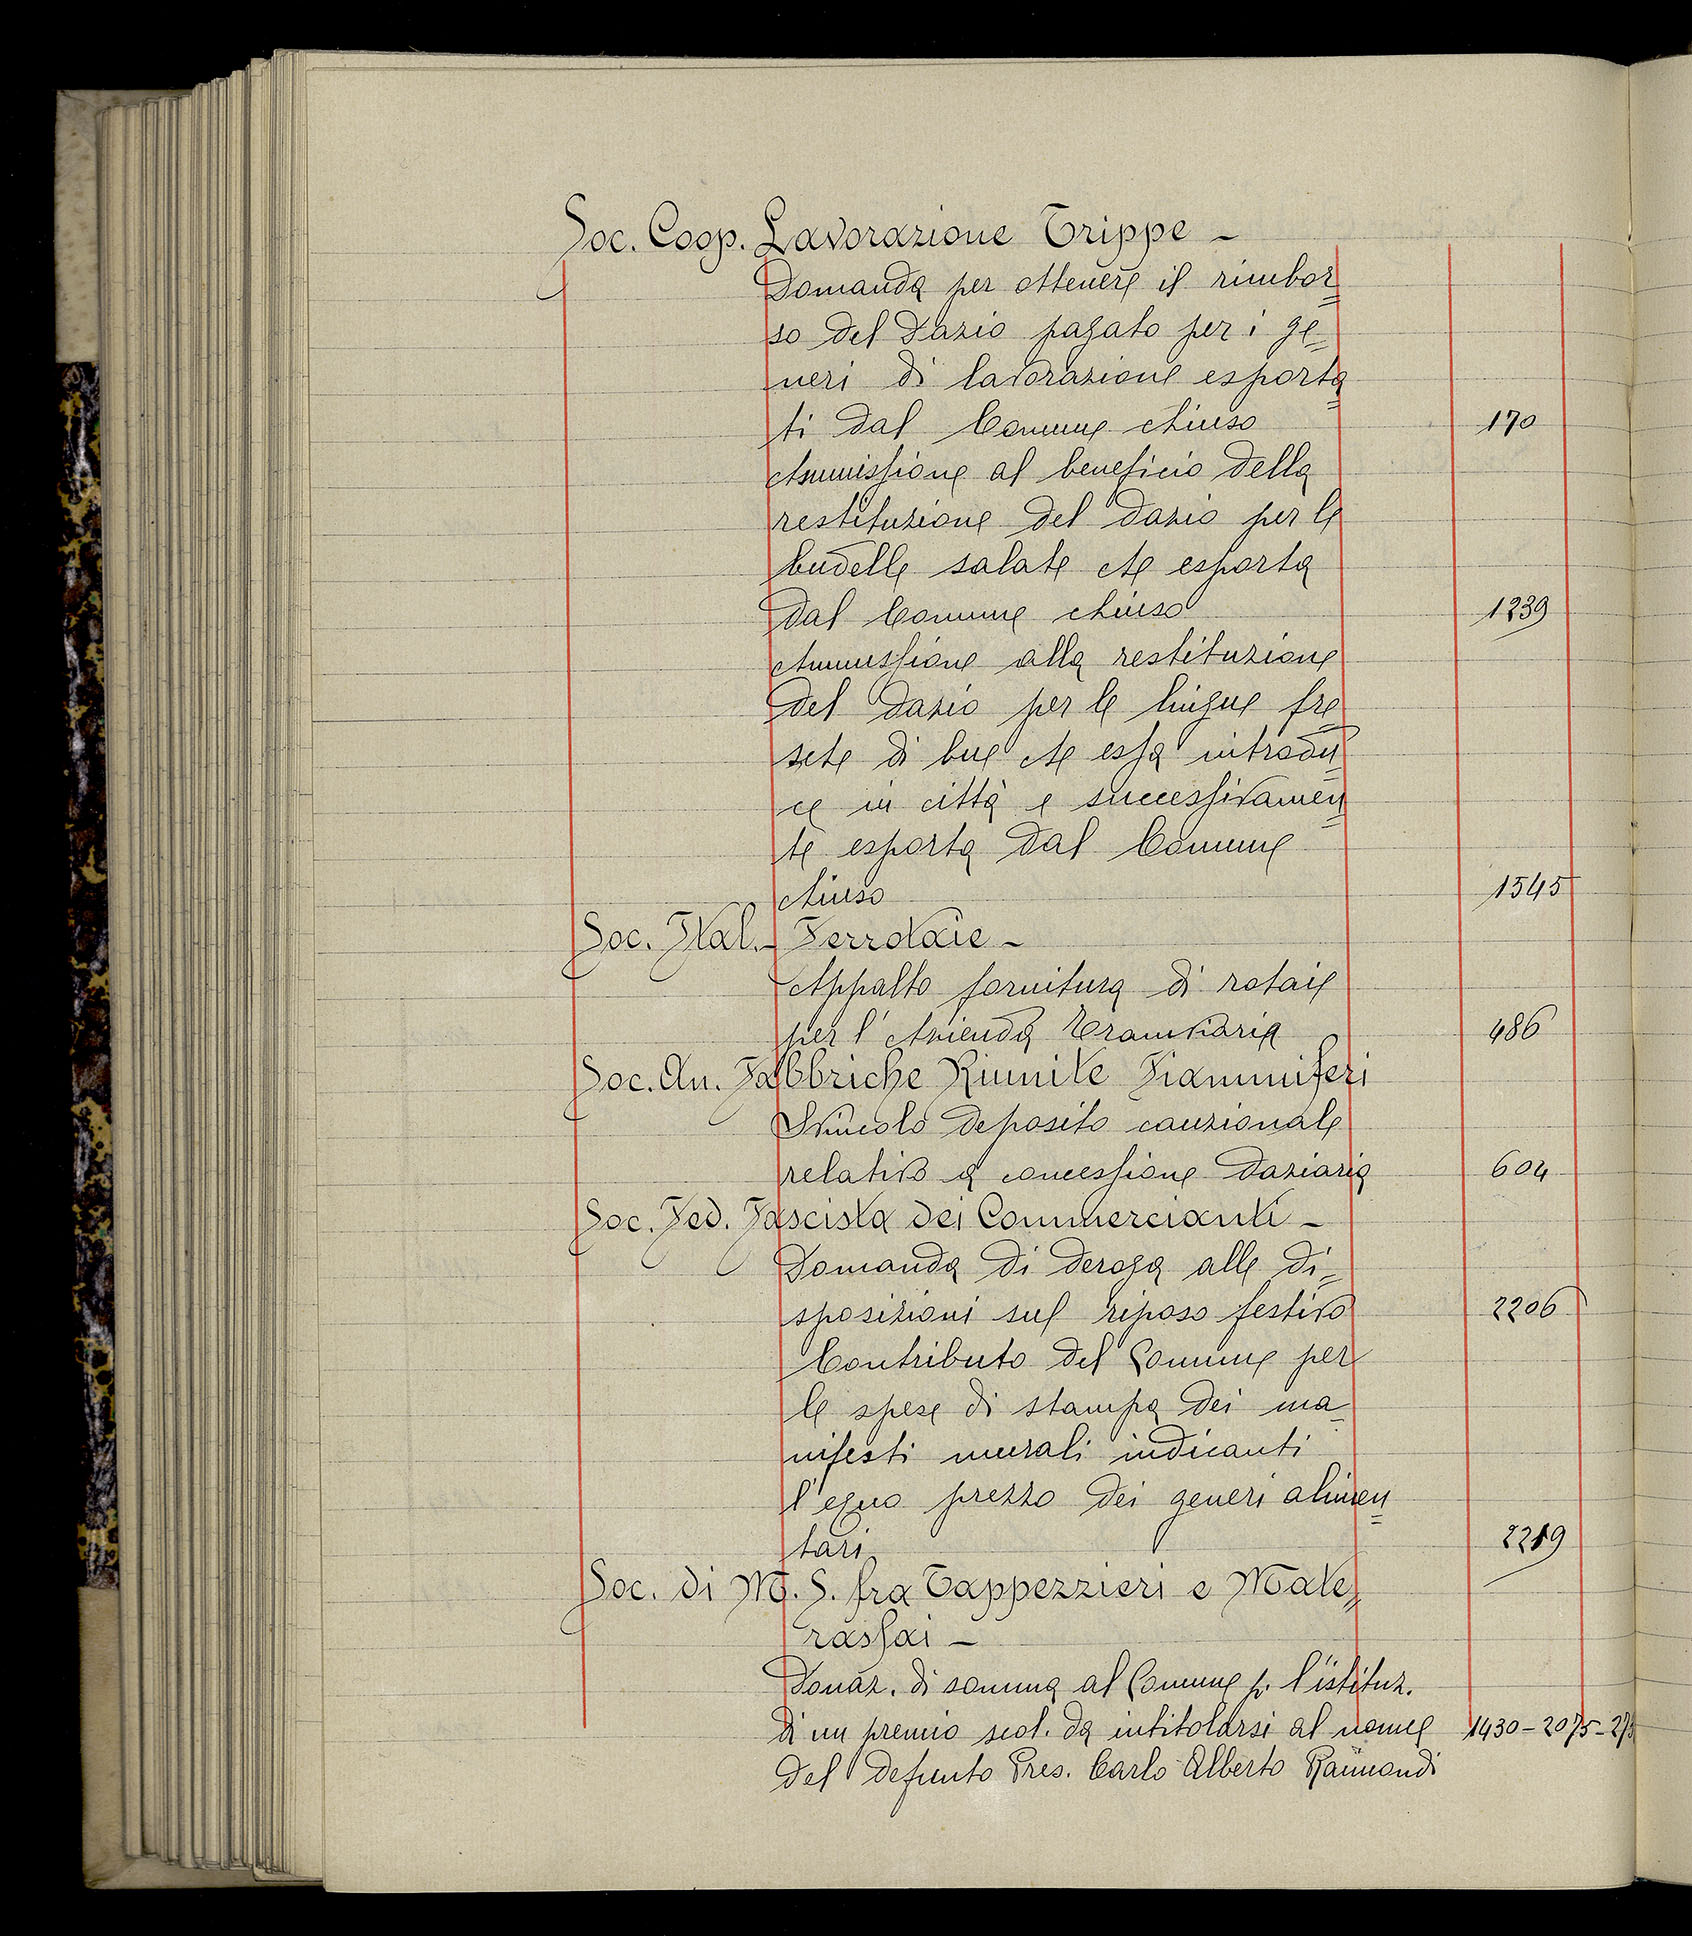 Soc. Coop. Lavorazione Trippe -
Domanda per ottenere il rimbor=
so del Dazio pagato per i ge=
neri di lavorazione esporta=
ti dal Comune chiuso 170
Ammissione al beneficio della
restituzione del dazio per le
budelle salate che esporta
dal Comune chiuso 1239
Ammissione alla restituzione
del dazio per le lingue fre=
sche di bue che essa introdu=
ce in città e successivamen=
te esporta dal Comune
chiuso 1545
Soc. Ital. - Ferrotaie -
Appalto fornitura di rotaie
per l'Azienda Tramviaria 486
Soc. An. Fabbriche Riunite Fiammiferi
Svincolo deposito cauzionale
relativo a concessione daziaria 604
Soc. Fed. Fascista dei Commercianti -
Domanda di deroga alle di=
sposizioni sul riposo festivo 2206
Contributo del Comune per
le spese di stampa dei ma=
nifesti murali indicanti
l'equo prezzo dei generi alimen=
tari 2219
Soc. di M. S. fra Tappezzieri e Mate=
rassai -
Donaz. di somma al Comune p. l'istituz.
di un premio scol. da intitolarsi al nome 1430-2075-
del defunto Pres. Carlo Alberto Raimondi